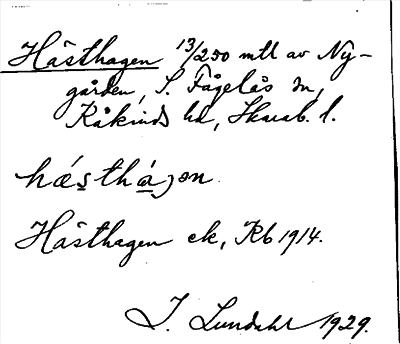 Hästhagen 13/250 mtl av Ny-
gården, S. Fågelås sn,
Kåkinds hd, Skarab. l.
hǽsthàɡən
Hästhagen ek, Rb 1914.
I. Lundahl 1929.